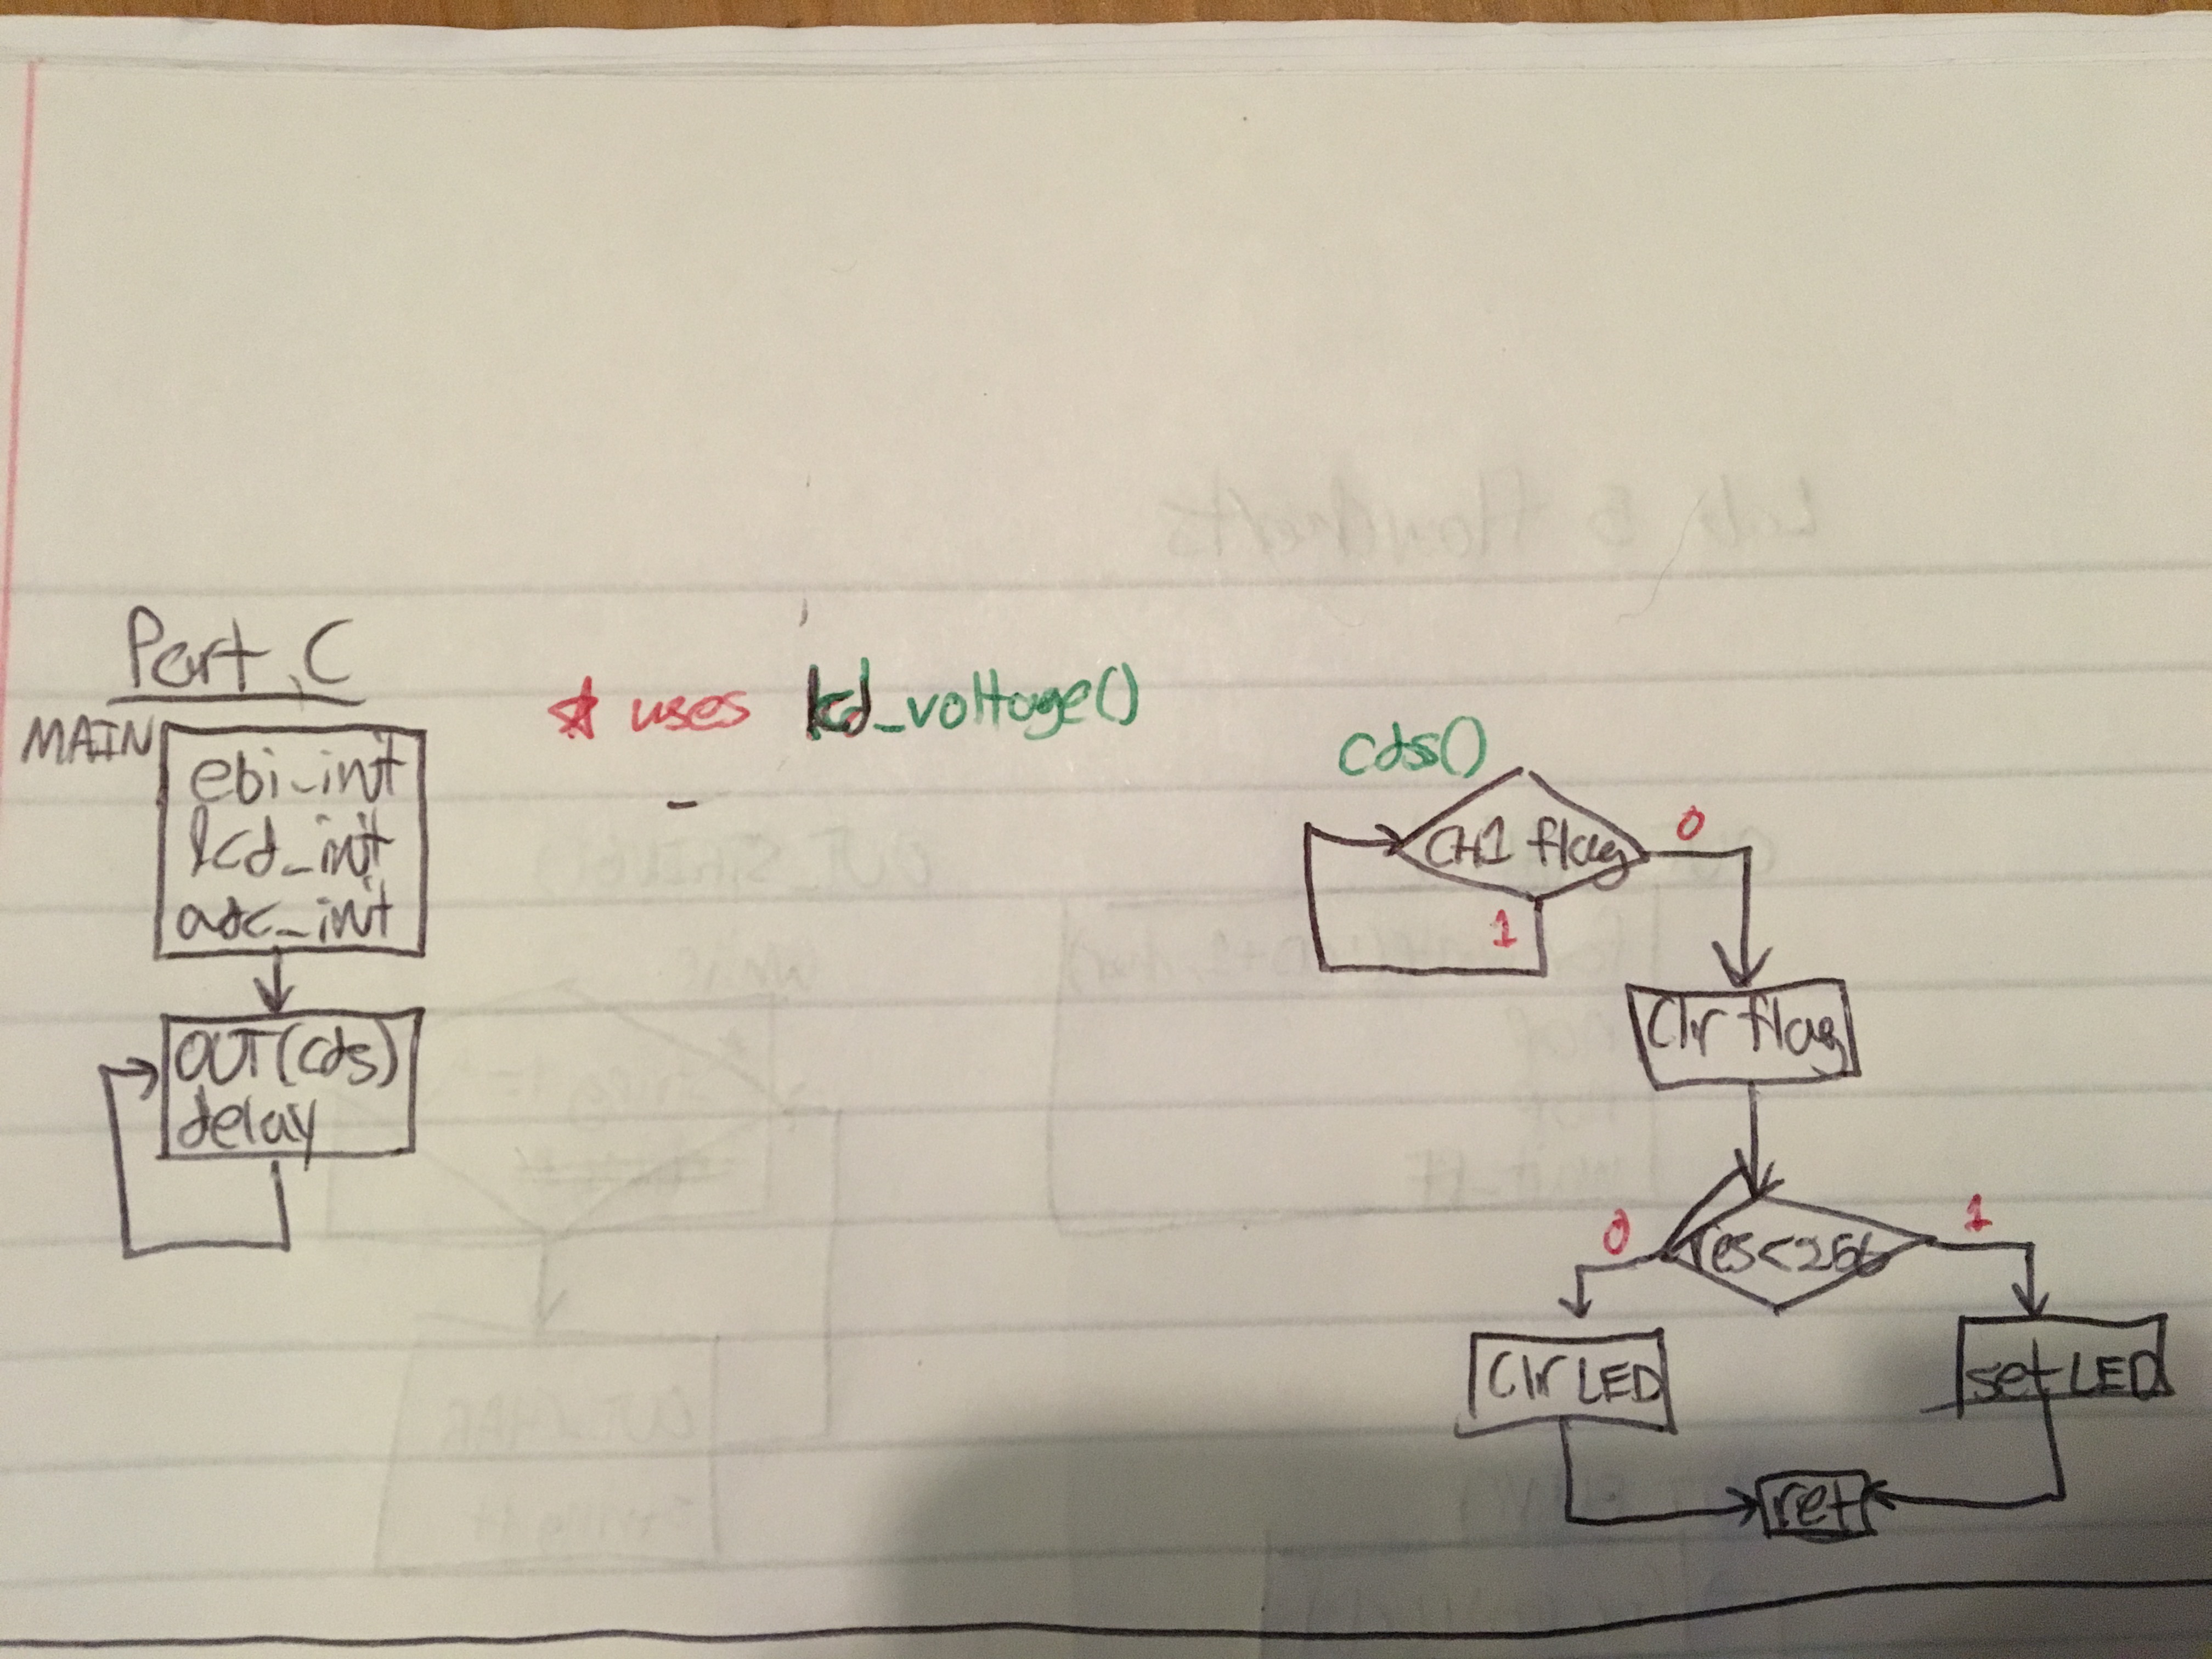 Part C
MAIN
ebi_init
lcd_init
adc_init
OUT(cds)
delay
* uses lcd_voltage()
cds()
CH1 flag
1
0
Clr flag
res<256
0
1
Clr LED
set LED
ret